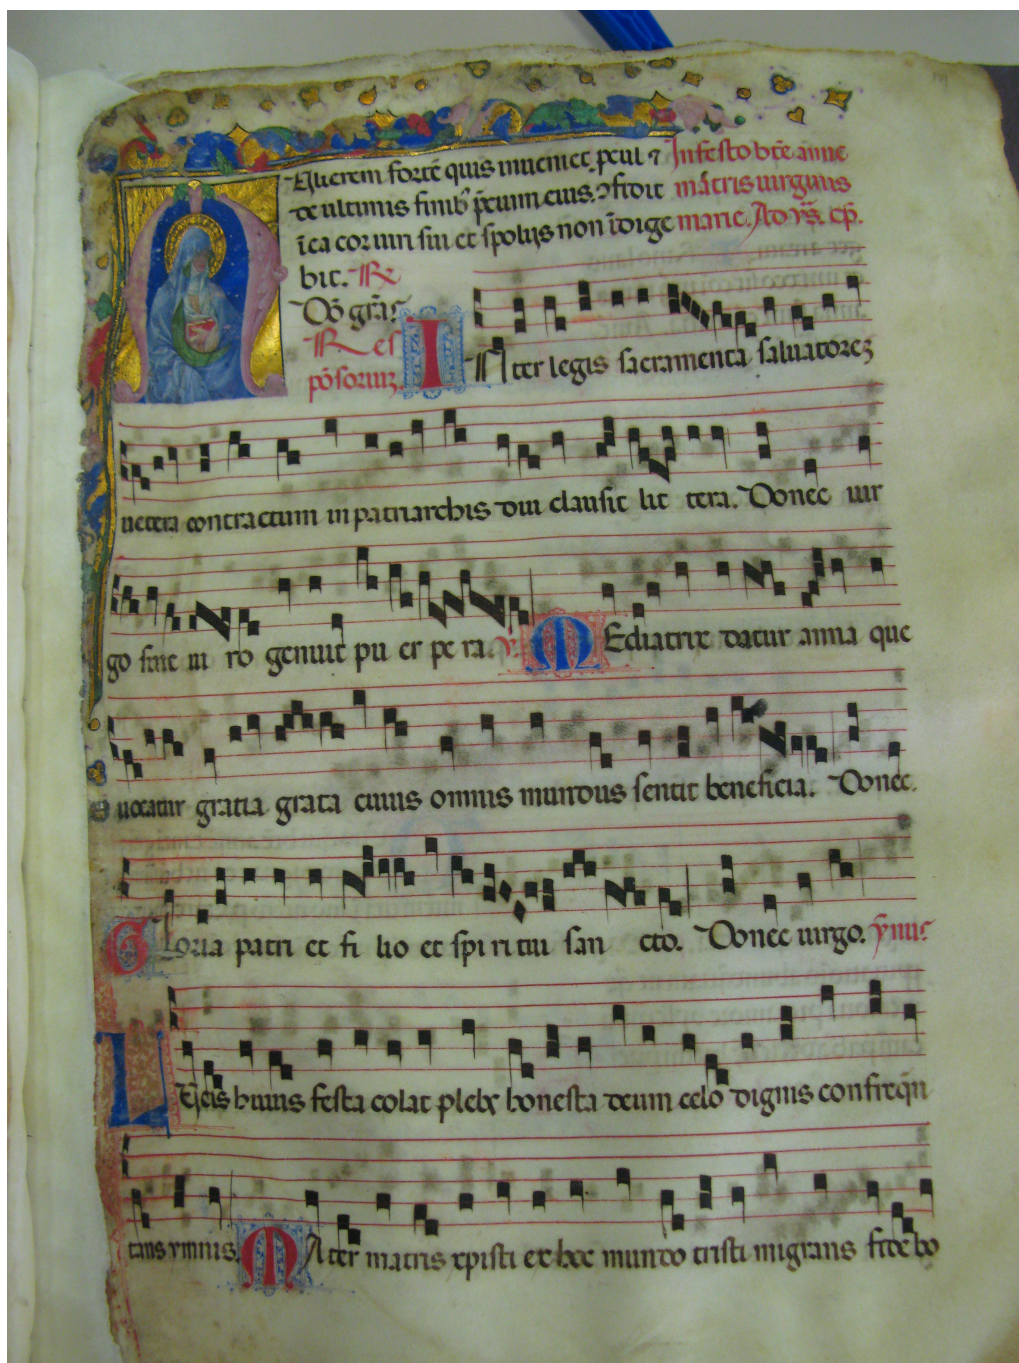 Mulierem fortē quis inueniet. pcul ⁊ In festo bt̄e anne
de ultimis finibꝰ p̄cium eius. ↄfidit mr̄is uirginis
ī ea cor uiri sui et spolijs non īdige marie. Ad
bit. R
Dō gr̄as
Res
pōsoriuꝫ
Inter legis sacramenta saluatoreꝫ
uetera contractum in patriarchis diu clausit lit tera. Donec uir
go sine ui ro genuit pu er pe ra. Mediatrix datur anna que
uocatur gratia grata cuius omnis mundus sentit beneficia. Donec.
Gloria patri et fi lio et spi ri tui san cto. Donec uirgo. ymus
L huius festa colat plebx honesta deum celo dignis confreq̄n
tans ymnis. Mater matris xpisti ex hoc mundo tristi migrans side bo